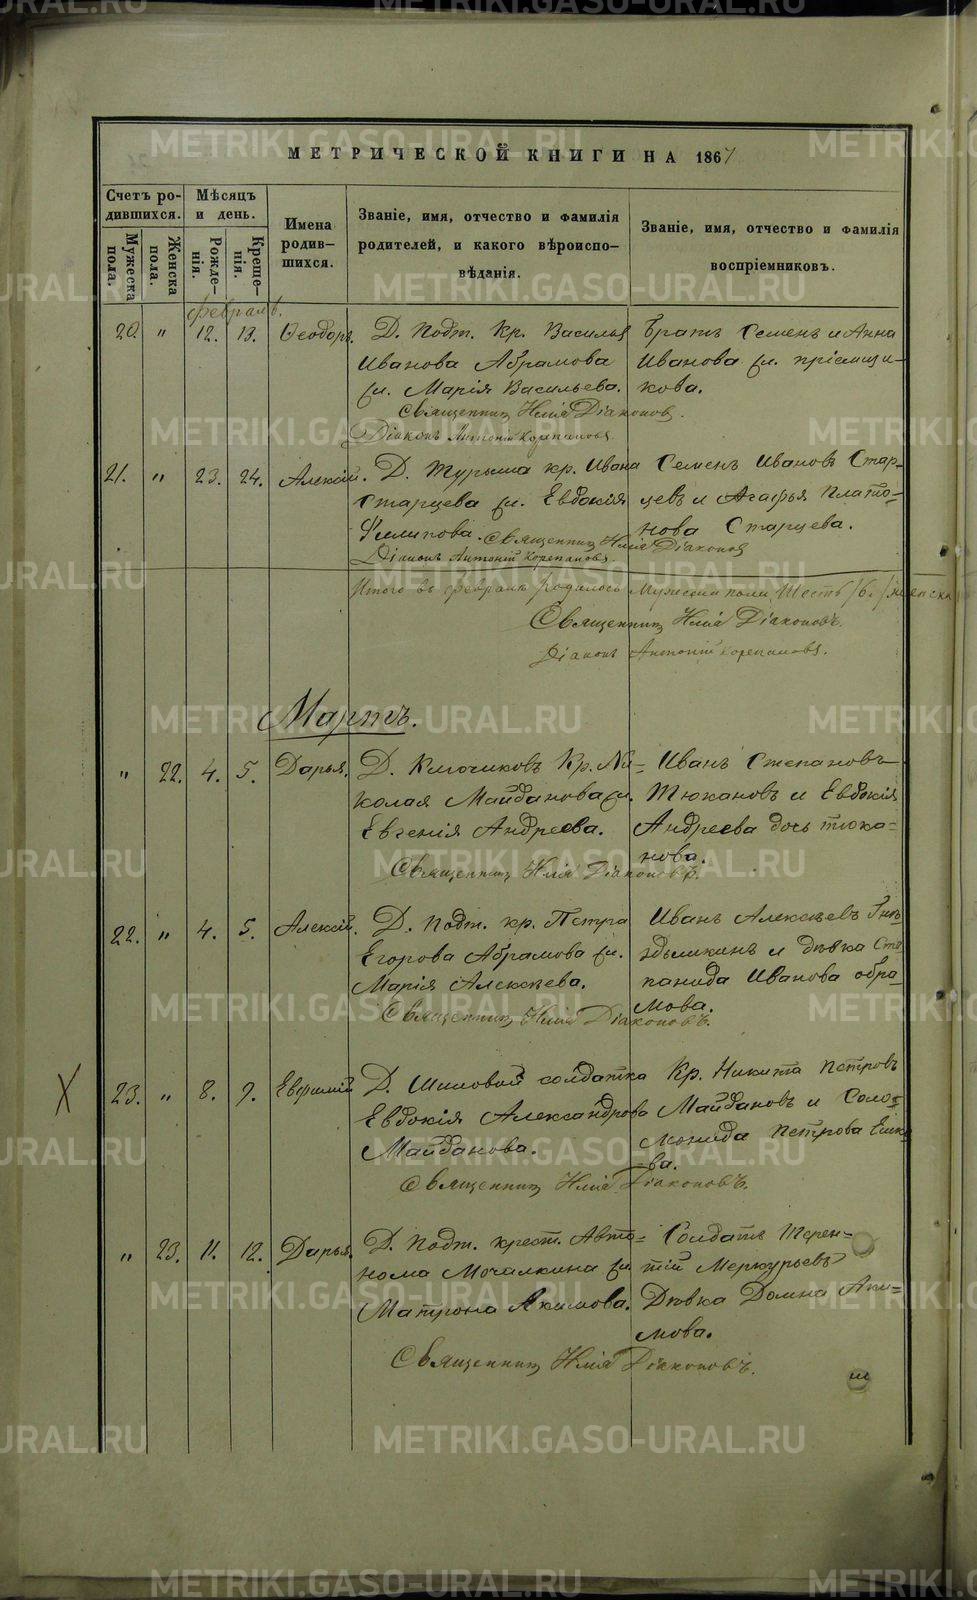 METRIKI.GASO-URAL.RU
МЕТРИЧЕСКОЙ КНИГИ НА 1867
Счетъ родившихся.
Мужеска пола.
Женска пола.
Мѣсяцъ и день.
Рожденія.
Крещенія.
Имена родившихся.
Званіе, имя, отчество и фамилія родителей, и какого вѣроисповѣданія.
Званіе, имя, отчество и фамилія воспріемниковъ.
февраль.
20. " 12. 13. Ѳеодоръ. Д. Подт. Кр. Василья Братъ Семенъ и Анна
Иванова Абрамова Иванова
Марія Васильева. кова.
Священникъ Илія Діаконовъ.
Діаконъ Антоній Корепановъ.
21. " 23. 24. Алексій. Д. Турыша кр. Ивана Семенъ Ивановъ Стар-
Старцева Евдокія цевъ и Агафья Плато-
Филипова. нова Старцева.
Священникъ Илія Діаконовъ
Діаконъ Антоній Корепановъ.
Итого въ февралѣ родилось Мужеска пола Шесть /6./ женска
Священникъ Илія Діаконовъ.
Діаконъ Антоній Корепановъ.
Мартъ.
" 22. 4. 5. Дарья. Д. Ключиковъ Кр. Ни= Иванъ Степановъ
колая Майданова Тюкановъ и Евдокія
Евгенія Андреева. Андреева дочь тюка=
нова.
Священникъ Илія Діаконовъ.
22. " 4. 5. Алексій. Д. Подт. кр. Петра Иванъ Алексѣевъ
Егорова Абрамова и дѣвка Сте
Марія Алексѣева. панида Иванова обра-
мова.
Священникъ Илія Діаконовъ.
X 23. " 8. 9. Евфимій Д. Шиловой солдатка Кр. Никита Петровъ
Евдокія Александрова Майдановъ и Соло=
Майданова. монида Петрова
ва.
Священникъ Илія Діаконовъ.
" 23. 11. 12. Дарья. Д. Подт. крест. Авто= Солдатъ Терен=
нома Мочалкина тій Меркурьевъ
Матрона Акимова. Дѣвка Домна Аки=
мова.
Священникъ Илія Діаконовъ.